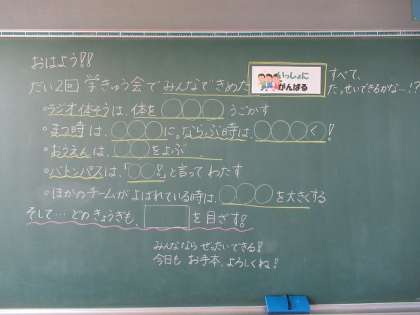 おはよう!!
だい2回 学きゅう会でみんなできめた いっしょに がんばる すべて、
たっせいできるかな…!?
・ラジオ体そうは、体を○○○うごかす
・まつ時は、○○○に。ならぶ時は○○○く!
・おうえんは、○○をよぶ
・バトンパスは、「○○!」と言ってわたす
・ほかのチームがよばれている時は、○○○を大きくする
そして…どのきょうぎも、□を目ざす!
みんななら ぜったいできる!
今日も お手本、よろしくね!